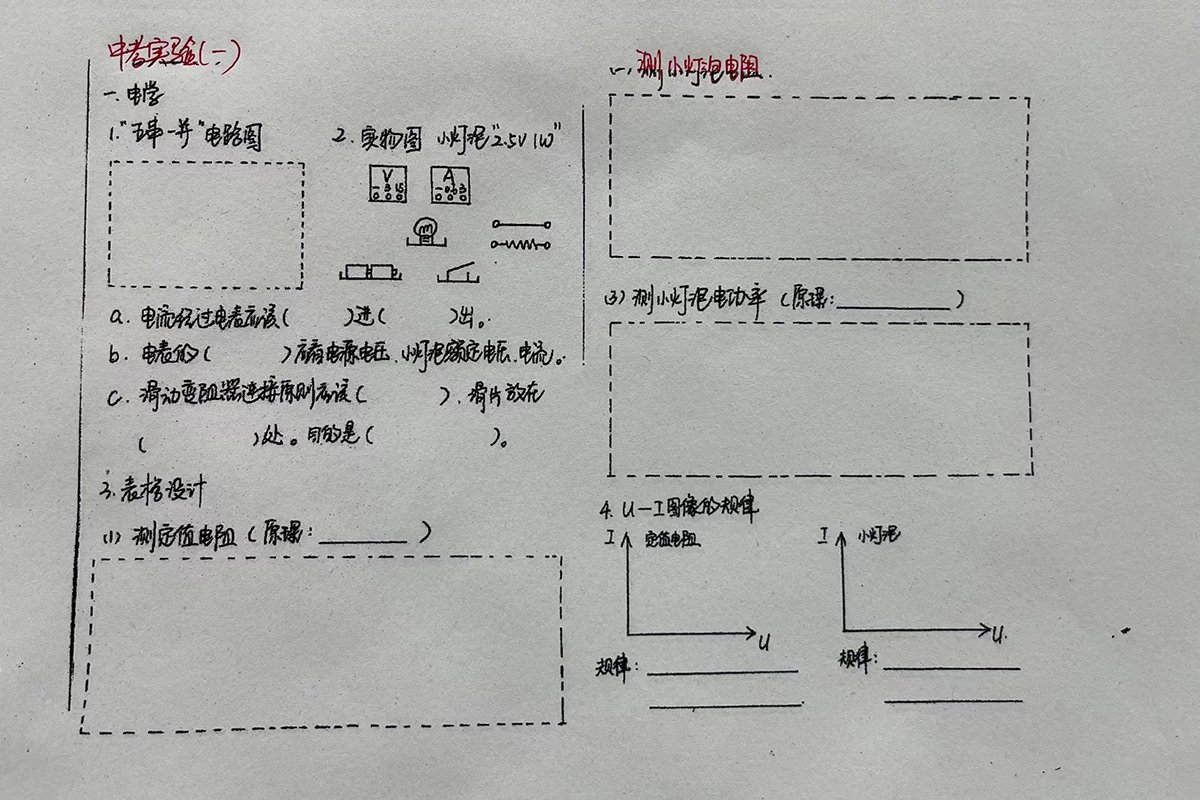 中考实验(一)
一.电学
1."五串一并"电路图
2.实物图 小灯泡"2.5V 1W"
V
- 3 15
A
- 0.6 3
a. 电流经过电表应该( )进( )出。
b. 电表的( )看电源电压、小灯泡额定电压、电流。
c. 滑动变阻器连接原则应该( ),滑片放在
( )处。目的是( )。
3.表格设计
(1) 测定值电阻(原理: )
(一)测小灯泡电阻.
(3) 测小灯泡电功率(原理: )
4. U-I图像的规律
I 定值电阻
U
规律:
I 小灯泡
U
规律: